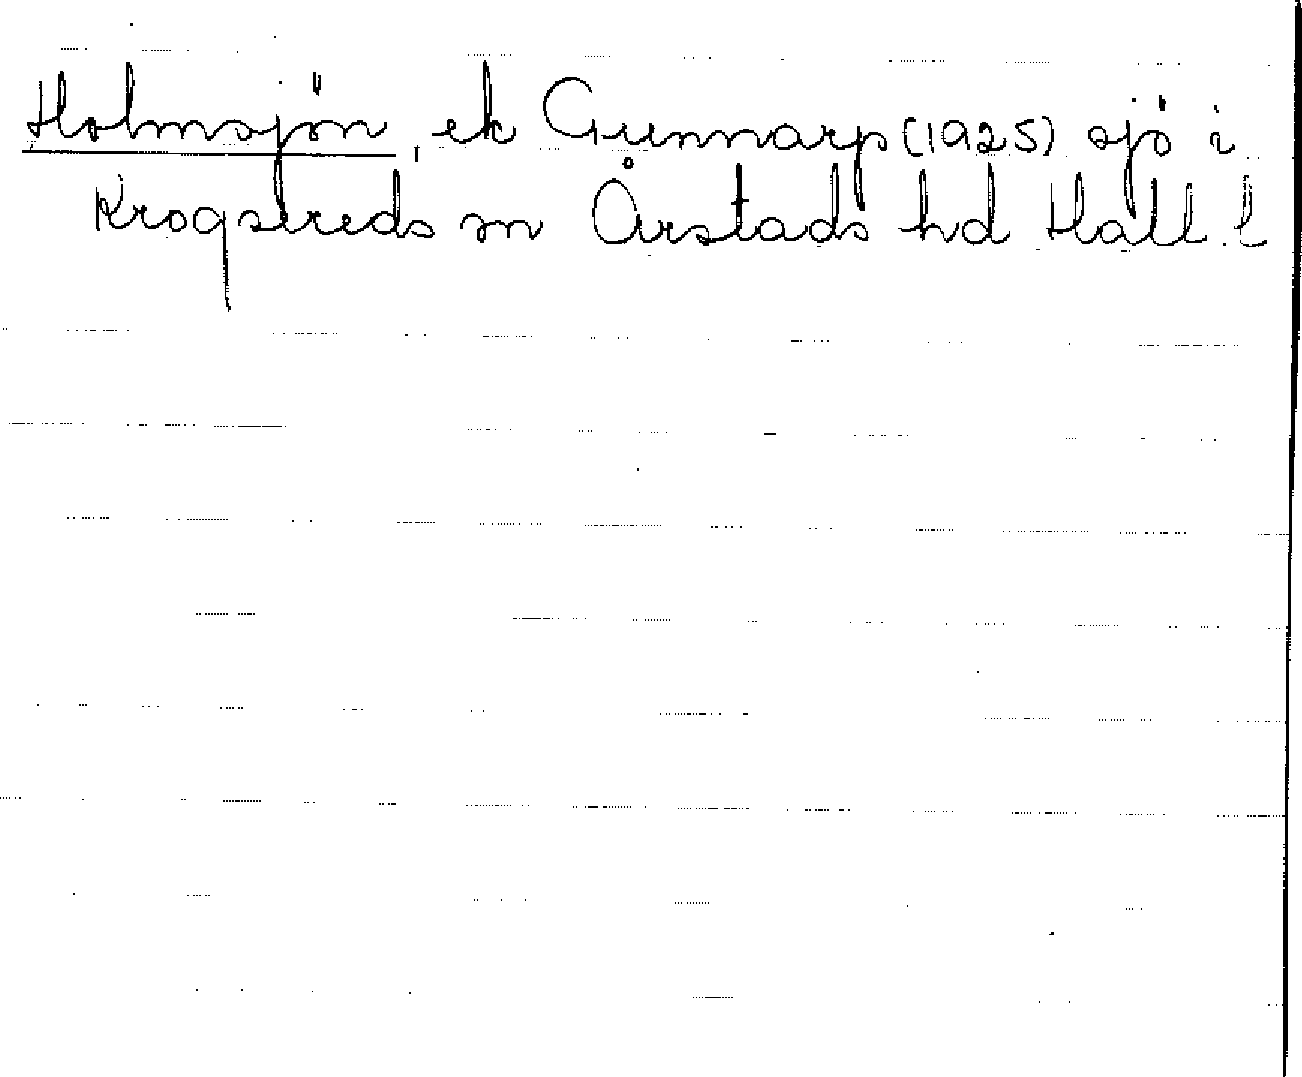 Holmsjön, ek Gunnarp (1925) sjö i
Krogsereds sn Årstads hd Hall. l